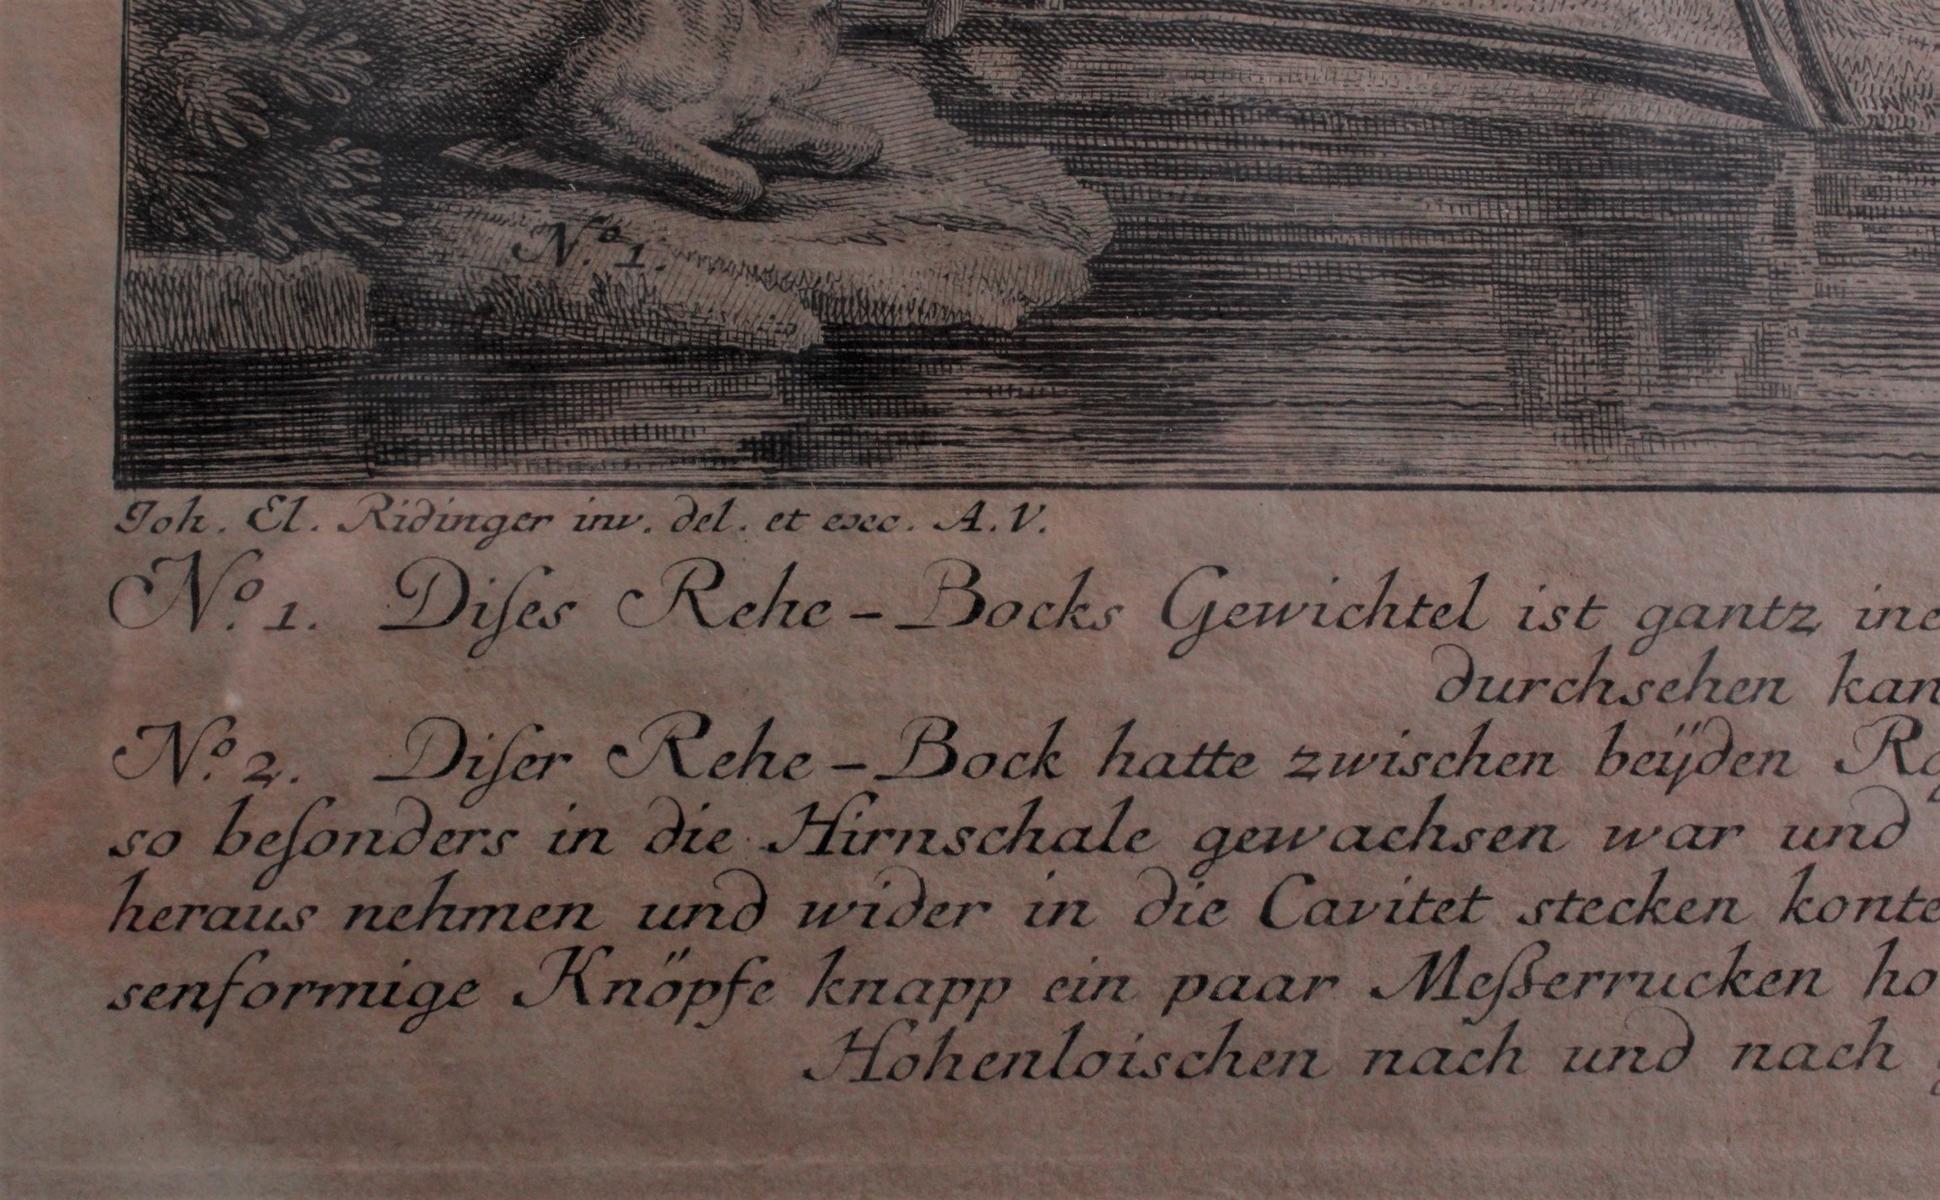 Nº. 1.
Joh. El. Ridinger inv. del. et exec. A.V.
Nº. 1. Diſes Rehe-Bocks Gewichtel ist gantz
durchsehen
Nº. 2. Diſer Rehe-Bock hatte zwischen beÿden
so beſonders in die Hirnschale gewachsen war und
heraus nehmen und wider in die Cavitet stecken konte
senformige Knöpfe knapp ein paar Meßerrucken
Hohenloischen nach und nach